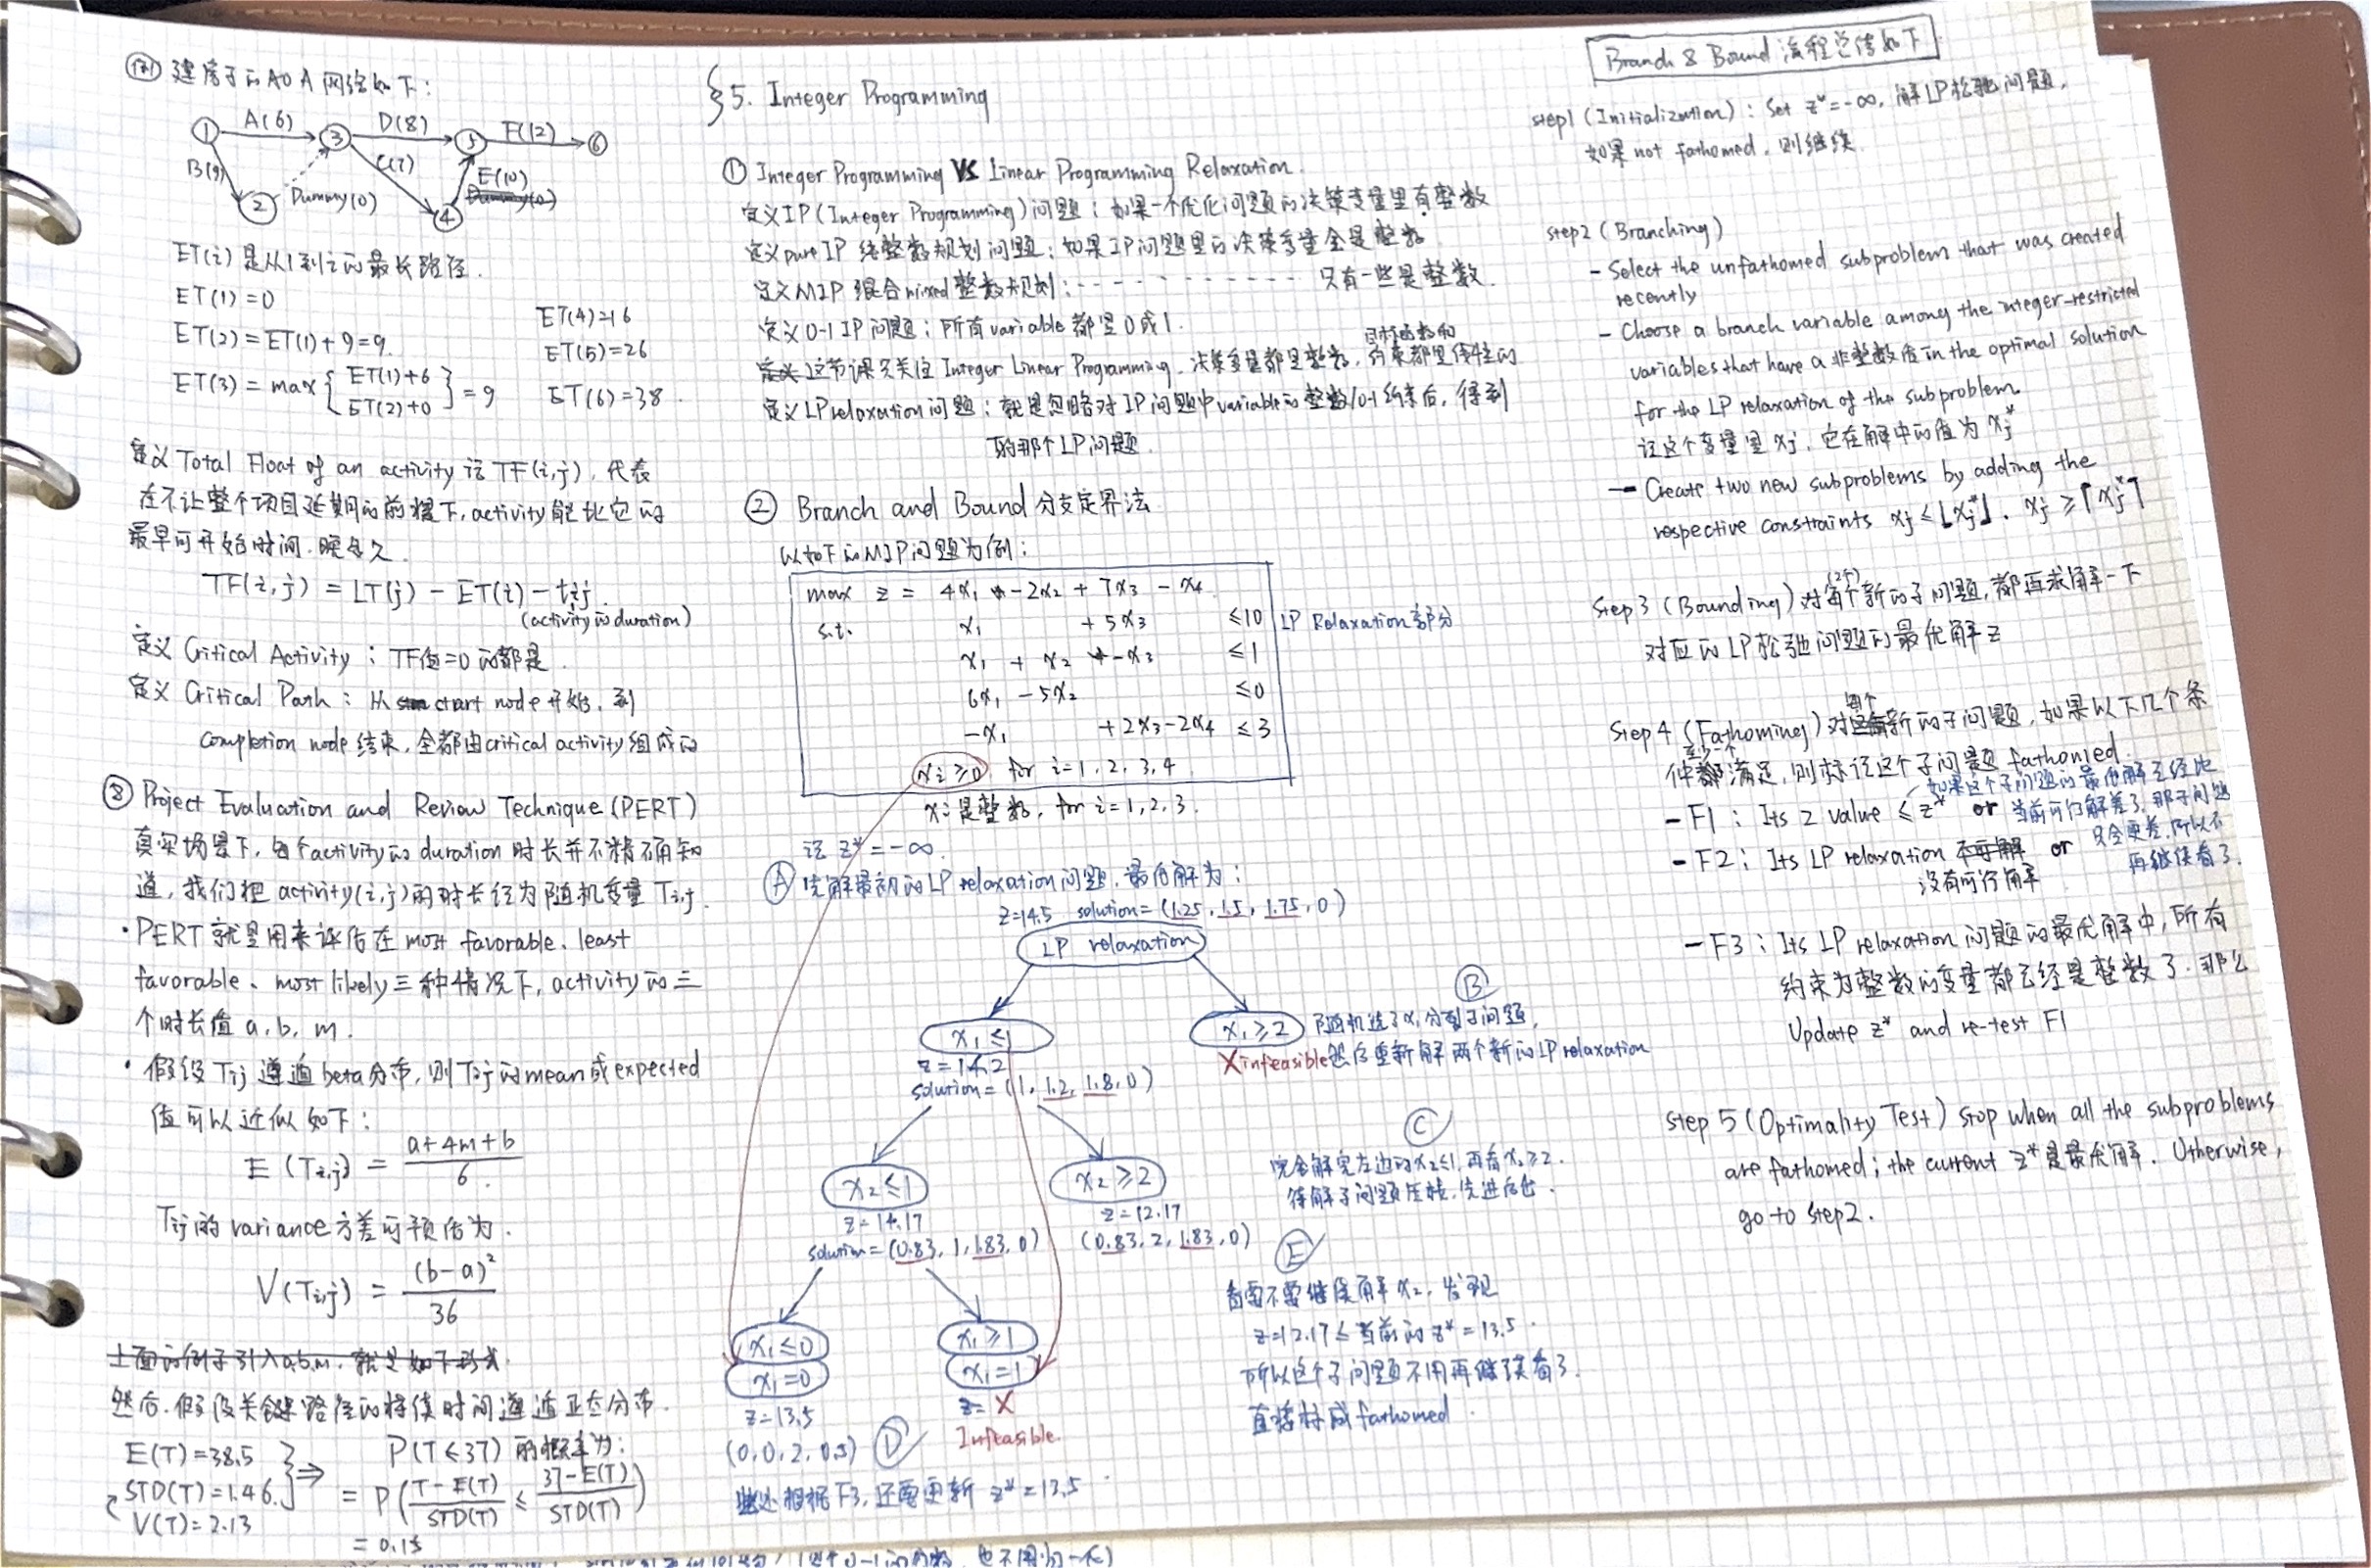 例 建房子的AOA网络如下:
A(6) D(8) F(12)
1 3 5 6
B(9) C(7) E(10)
2 Dummy(0) 4
ET(i)是从1到i的最长路径.
ET(1)=0
ET(2)=ET(1)+9=9.
ET(3)=max{ET(1)+6
ET(2)+0}=9
ET(4)=16
ET(5)=26
ET(6)=38.
定义 Total Float of an activity 记 TF(i,j), 代表
在不让整个项目延期的前提下, activity能比它的
最早可开始时间.晚多久.
TF(i,j) = LT(j) - ET(i) - tij.
(activity的duration)
定义 Critical Activity : TF值=0的都是.
定义 Critical Path : 从 start node 开始, 到
completion node 结束, 全都由critical activity组成的
③ Project Evaluation and Review Technique (PERT)
真实场景下, 每个activity的 duration 时长并不精确知
道, 我们把 activity(i,j)的时长记为随机变量 Ti,j.
·PERT 就是用来评估在 most favorable、least
favorable、most likely 三种情况下, activity的三
个时长值 a, b, m.
· 假设 Tij 遵循beta分布, 则Tij的mean或expected
值可以近似如下:
E(Ti,j) = a+4m+b
6.
Tij的variance方差可预估为.
V(Ti,j) = (b-a)²
36
上面的例子引入a,b,m. 就是如下形式
然后, 假设关键路径的持续时间遵循正态分布.
E(T)=38.5
STD(T)=1.46
V(T)=2.13
⇒ P(T≤37) 的概率为:
= P( T-E(T) ≤ 37-E(T)
STD(T) STD(T) )
= 0.15
§5. Integer Programming
① Integer Programming VS Linear Programming Relaxation.
定义IP(Integer Programming)问题: 如果一个优化问题的决策变量里有整数
定义pure IP 纯整数规划问题: 如果IP问题里的决策变量全是整数.
定义MIP 混合mixed整数规划: - - - - - - - - - 只有一些是整数.
定义0-1 IP问题: 所有variable都是0或1.
目标函数和
这节课只关注 Integer Linear Programming, 决策变量都是整数, 约束都是线性的
定义LP relaxation问题: 就是忽略对IP问题中variable的整数/0-1约束后, 得到
的那个LP问题.
② Branch and Bound 分支定界法
以如下的MIP问题为例:
max z = 4x₁ -2x₂ + 7x₃ - x₄
s.t. x₁ + 5x₃ ≤10 LP Relaxation部分
x₁ + x₂ - x₃ ≤1
6x₁ -5x₂ ≤0
-x₁ +2x₃-2x₄ ≤3
xi ≥0 for i=1,2,3,4
xi是整数, for i=1,2,3.
记 z*=-∞.
Ⓐ 先解最初的LP relaxation问题, 最优解为:
z=14.5 solution=(1.25, 1.5, 1.75, 0)
LP relaxation
x₁≤1
z=14.2
solution=(1, 1.2, 1.8, 0)
x₁≥2
X infeasible
Ⓑ
随机选了x₁分到子问题,
然后重新解两个新的LP relaxation
x₂≤1
z=14.17
solution=(0.83, 1, 1.83, 0)
x₂≥2
z=12.17
(0.83, 2, 1.83, 0)
Ⓒ
完全解完左边的x₂≤1, 再看x₂≥2.
待解子问题压栈, 先进后出.
x₁≤0
x₁=0
z=13.5
(0,0,2,0.5) Ⓓ
x₁≥1
x₁=1
z= X
Infeasible.
根据F3, 还需更新 z*=13.5
Ⓔ
看要不要继续解x₂, 发现
z=12.17≤当前的z*=13.5.
所以这个子问题不用再继续看了.
直接标成fathomed.
Branch & Bound 流程总结如下
step1 (Initialization): Set z*=-∞, 解LP松弛问题,
如果 not fathomed, 则继续.
step2 (Branching)
- Select the unfathomed subproblem that was created
recently
- Choose a branch variable among the integer-restricted
variables that have a 非整数值 in the optimal solution
for the LP relaxation of the subproblem.
记这个变量是xj, 它在解中的值为xj*
- Create two new subproblems by adding the
respective constraints xj≤⌊xj*⌋, xj≥⌈xj*⌉
Step3 (Bounding) 对每个(2个)新的子问题, 都再求解一下
对应的LP松弛问题的最优解z
Step4 (Fathoming) 对每个新的子问题, 如果以下几个条
件满足, 则标记这个子问题 fathomed.
- F1: Its z value ≤ z* or
如果这个子问题的最优解已经比
当前可行解差了, 那子问题
只会更差, 所以不
再继续看了.
- F2: Its LP relaxation 没有可行解 or
- F3: Its LP relaxation 问题的最优解中, 所有
约束为整数的变量都已经是整数了. 那么
Update z* and re-test F1
Step5 (Optimality Test) stop when all the subproblems
are fathomed; the current z*是最优解. Otherwise,
go to step2.